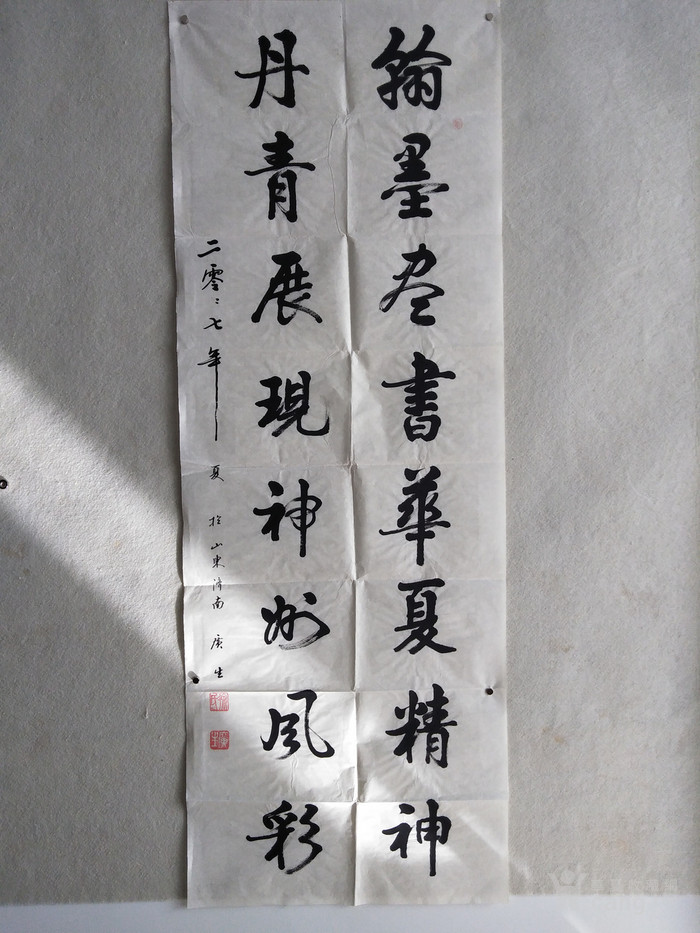 翰墨尽書華夏精神
丹青展現神州風彩
二零二七年夏於山東濟南廣生